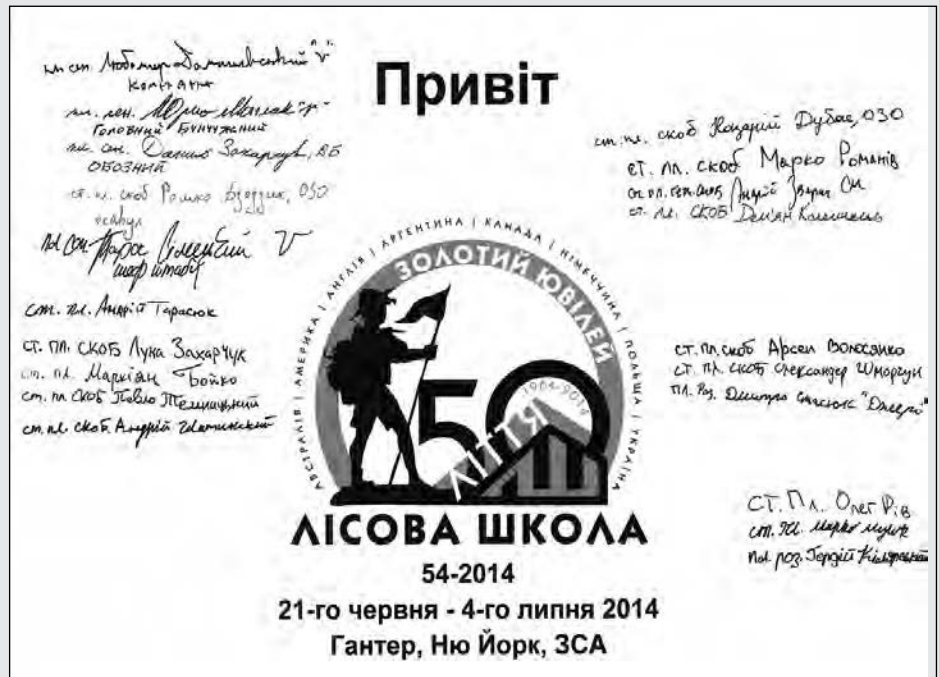 Привіт
пл. сен.
Командант
пл. сен. Юрко
Головний Бунчужний
пл. сен. Данило Захарчук, ВБ
Обозний
ст. пл. скоб Ромко ОЗО
осавул
пл. сен. Тарас
шеф штабу
ст. пл. Андрій Тарасюк
ст. пл. скоб Лука Захарчук
ст. пл. Маркіян Бойко
ст. пл. скоб Павло
ст. пл. скоб Андрій
ст. пл. скоб Назарій Дубас, ОЗО
ст. пл. скоб Марко Романів
ст. пл. скоб Андрій
ст. пл. скоб Дем'ян
ст. пл. скоб Арсен Волосянко
ст. пл. скоб Олександер
пл. роз. Дмитро
ст. пл. Олег Рів
ст. пл. Марко
пл. роз. Гордій
АВСТРАЛІЯ | АМЕРИКА | АНГЛІЯ | АРГЕНТИНА | КАНАДА | НІМЕЧЧИНА | ПОЛЬЩА | УКРАЇНА
ЗОЛОТИЙ ЮВІЛЕЙ
1964-2014
50
ЛІТТЯ
ЛШ
ЛІСОВА ШКОЛА
54-2014
21-го червня - 4-го липня 2014
Гантер, Ню Йорк, ЗСА